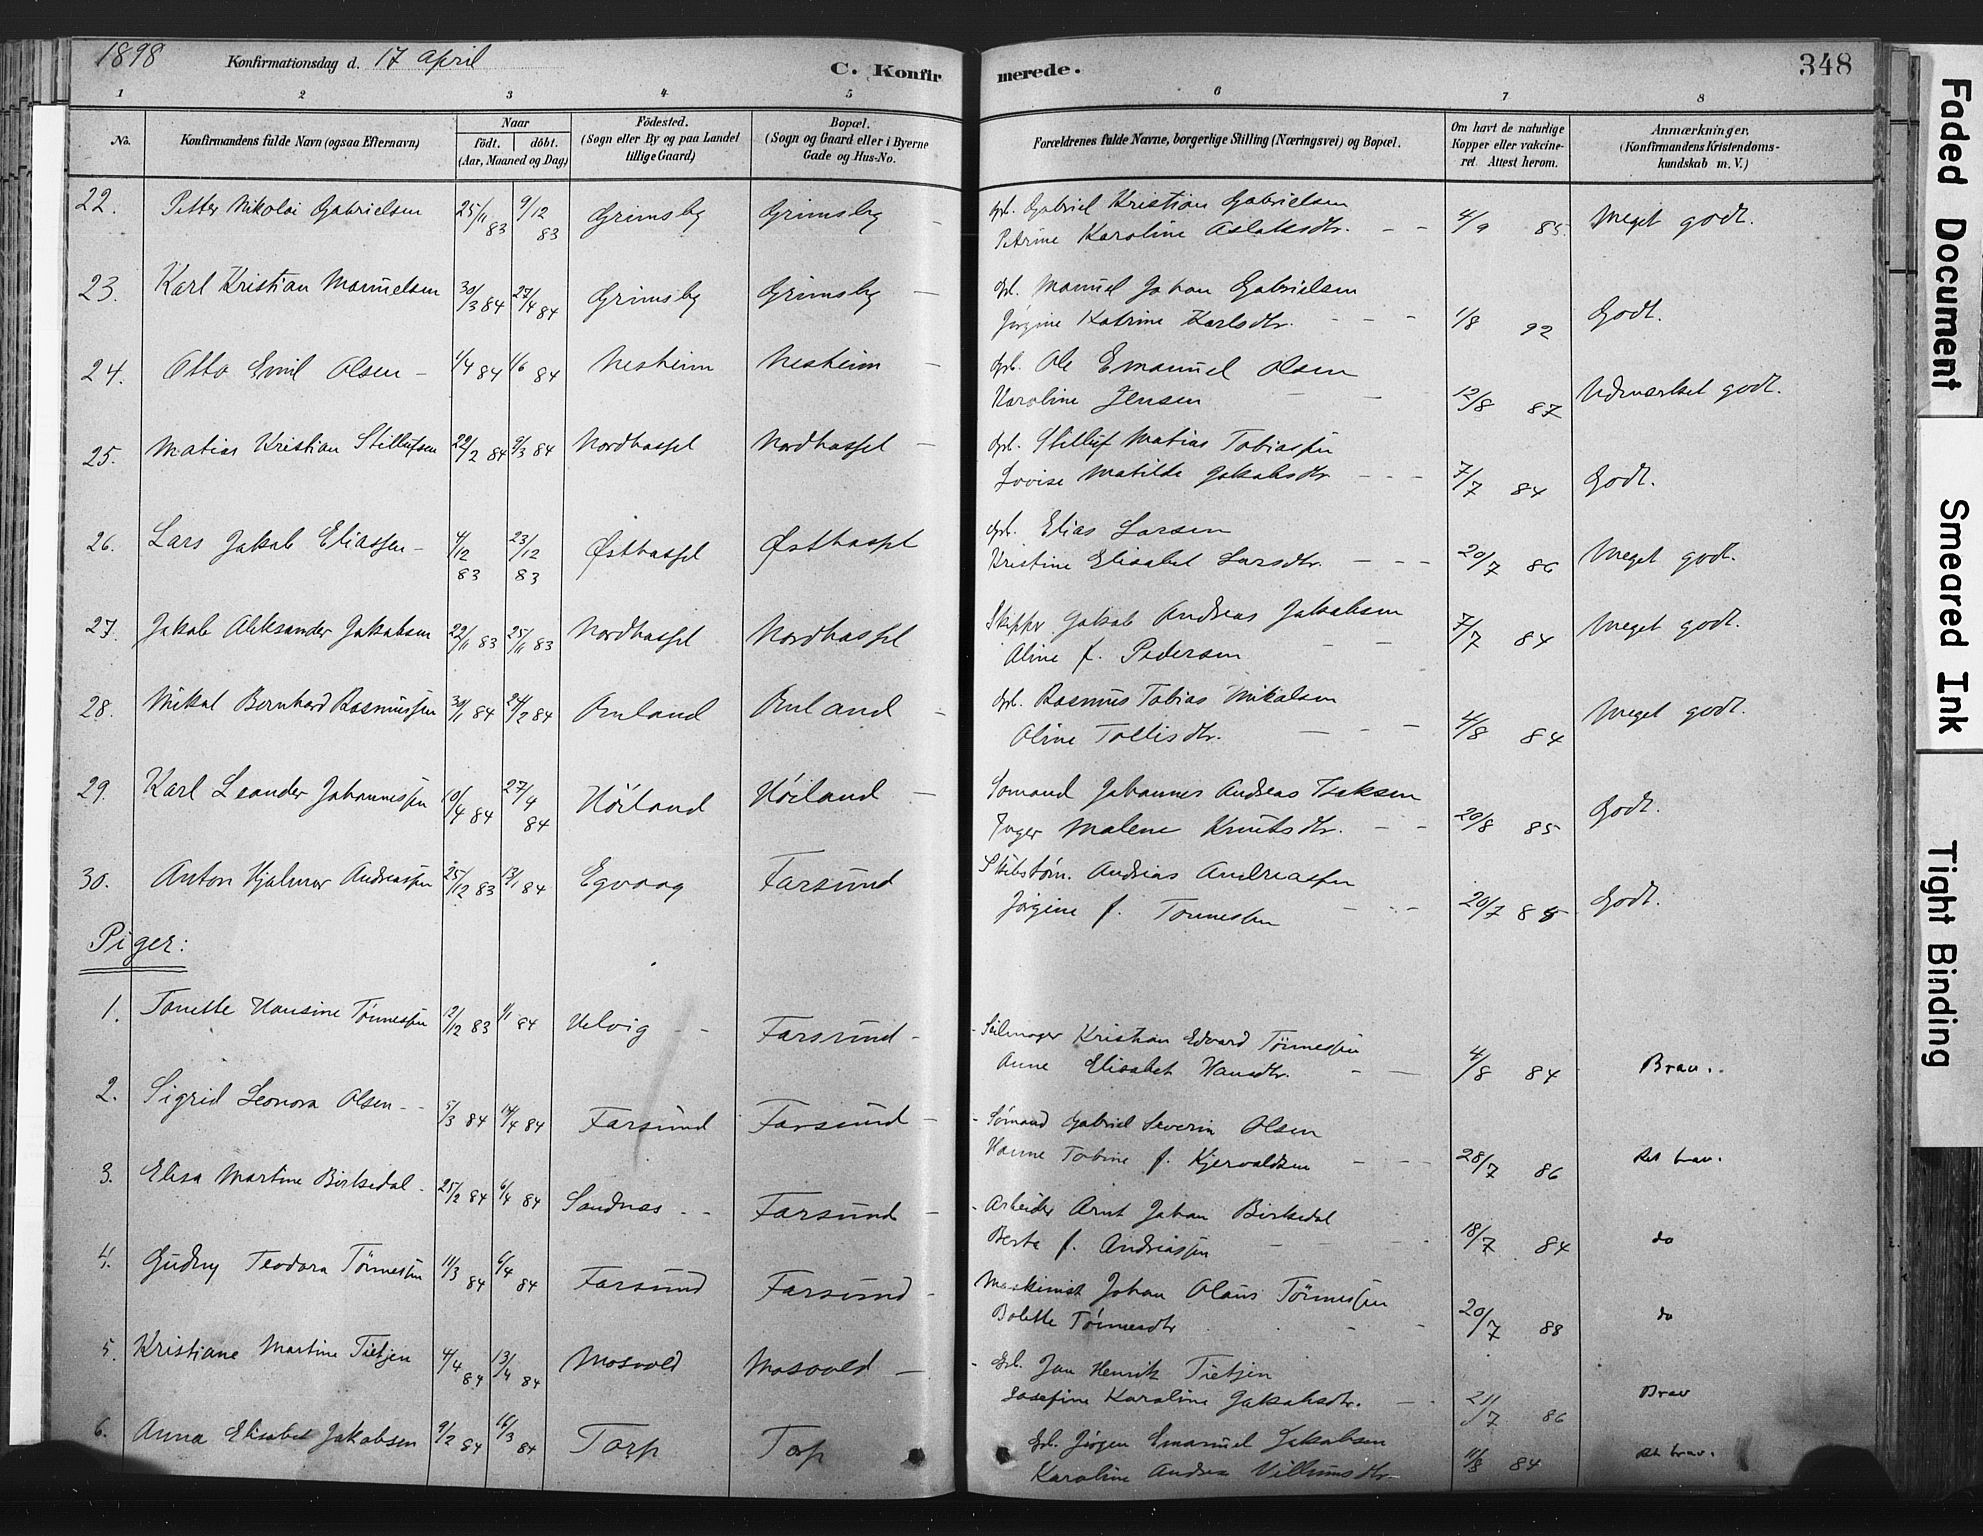 1898 Konfirmationsdag d. 17 April C. Konfir merede. 348
1 2 3 4 5 6 7 8
No. Konfirmandens fulde Navn (ogsaa Efternavn) Naar født. døbt. (Aar, Maaned og Dag) Fødested. (Sogn eller By og paa Landet tillige Gaard) Bopæl. (Sogn og Gaard eller i Byerne Gade og Hus-No. Forældrenes fulde Navne, borgerlige Stilling (Næringsvei) og Bopæl. Om havt de naturlige Kopper eller vakcineret. Attest herom. Anmærkninger. (Konfirmandens Kristendomskundskab m. V.)
22. Petter Nikolai Gabrielsen 25/11 83 9/12 83 Grimsby Grimsby Gbr. Gabriel Kristian Gabrielsen
Petrine Karoline Aslaksdtr. 4/9 85. Meget godt.
23. Karl Kristian Manuelsen 30/3 84 27/4 84 Grimsby Grimsby Gbr. Manuel Johan Gabrielsen
Jørgine Katrine Karlsdtr. 1/8 92 Godt.
24. Otto Emil Olsen 1/4 84 1/6 84 Nesheim Nesheim Gbr. Ole Emanuel Olsen
Karoline Jensen 12/8 87 Udmærket godt.
25. Matias Kristian Stillufsen 22/2 84 9/3 84 Nordhassel Nordhassel Gbr. Stilluf Matias Tobiassen
Lovise Matilde Jakobsdtr 7/7 84 Godt.
26. Lars Jakob Eliassen 4/12 83 23/12 83 Østhassel Østhassel Gbr. Elias Larsen
Kristine Elisabet Larsdtr. 20/7 86 Meget godt.
27. Jakob Aleksander Jakobsen 22/11 83 25/11 83 Nordhassel Nordhassel Skipper Jakob Andreas Jakobsen
Aline f. Pedersen 7/7 84 Meget godt.
28. Mikal Bernhard Rasmussen 30/1 84 24/2 84 Ouland Ouland Gbr. Rasmus Tobias Mikalsen
Aline Tollisdtr. 4/8 84 Meget godt.
29. Karl Leander Johannessen 10/4 84 27/4 84 Høiland Høiland Sømand Johannes Andreas Isaksen
Inger Malene Knutsdtr. 20/8 85 Godt.
30. Anton Hjalmar Andreassen 25/12 83 13/1 84 Egvaag Farsund Skibstøm. Andreas Andreassen
Jørgine f. Tønnessen 20/7 85 Godt.
Piger:
1. Tonette Hansine Tønnessen 12/12 83 1/1 84 Helvig Farsund Seilmager Kristian Edvard Tønnessen
Anne Elisabet Hansdtr. 4/8 84 Brav.
2. Sigrid Leonora Olsen 5/3 84 14/4 84 Farsund Farsund Sømand Gabriel Severin Olsen
Hanne Tobine f. Kjervaldsen 28/7 86 Ret brav.
3. Elisa Martine Birkedal 25/2 84 6/4 84 Sandnes Farsund Arbeider Arnt Johan Birkedal
Berta f. Andreassen 18/7 84 do
4. Gudny Teodora Tønnessen 11/3 84 6/4 84 Farsund Farsund Maskinist Johan Olaus Tønnessen
Bolette Tønnesdtr 20/7 88 do
5. Kristiane Martine Tietjen 4/4 84 13/4 84 Mosvold Mosvold Gbr. Jan Henrik Tietjen
Josefine Karoline Jakobsdtr. 21/7 86 Brav
6. Anna Elisabet Jakobsen 9/2 84 16/3 84 Torp Torp Gbr. Jørgen Emanuel Jakobsen
Karoline Andrea Villumsdtr 11/8 84 Ret brav.
Faded Document
Smeared Ink
Tight Binding